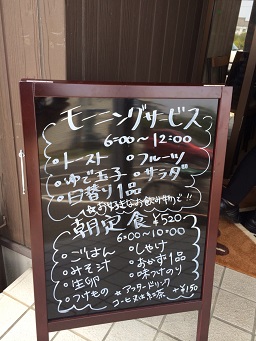 モーニングサービス
6:00〜12:00
・トースト ・フルーツ
・ゆで玉子 ・サラダ
・日替り1品
☆お好きなお飲み物で!!
朝定食 ¥520
6:00〜10:00
・ごはん ・しゃけ
・みそ汁 ・おかず1品
・生卵 ・味つけのり
・つけもの ☆アフタードリンク
コーヒー又は紅茶 +¥150